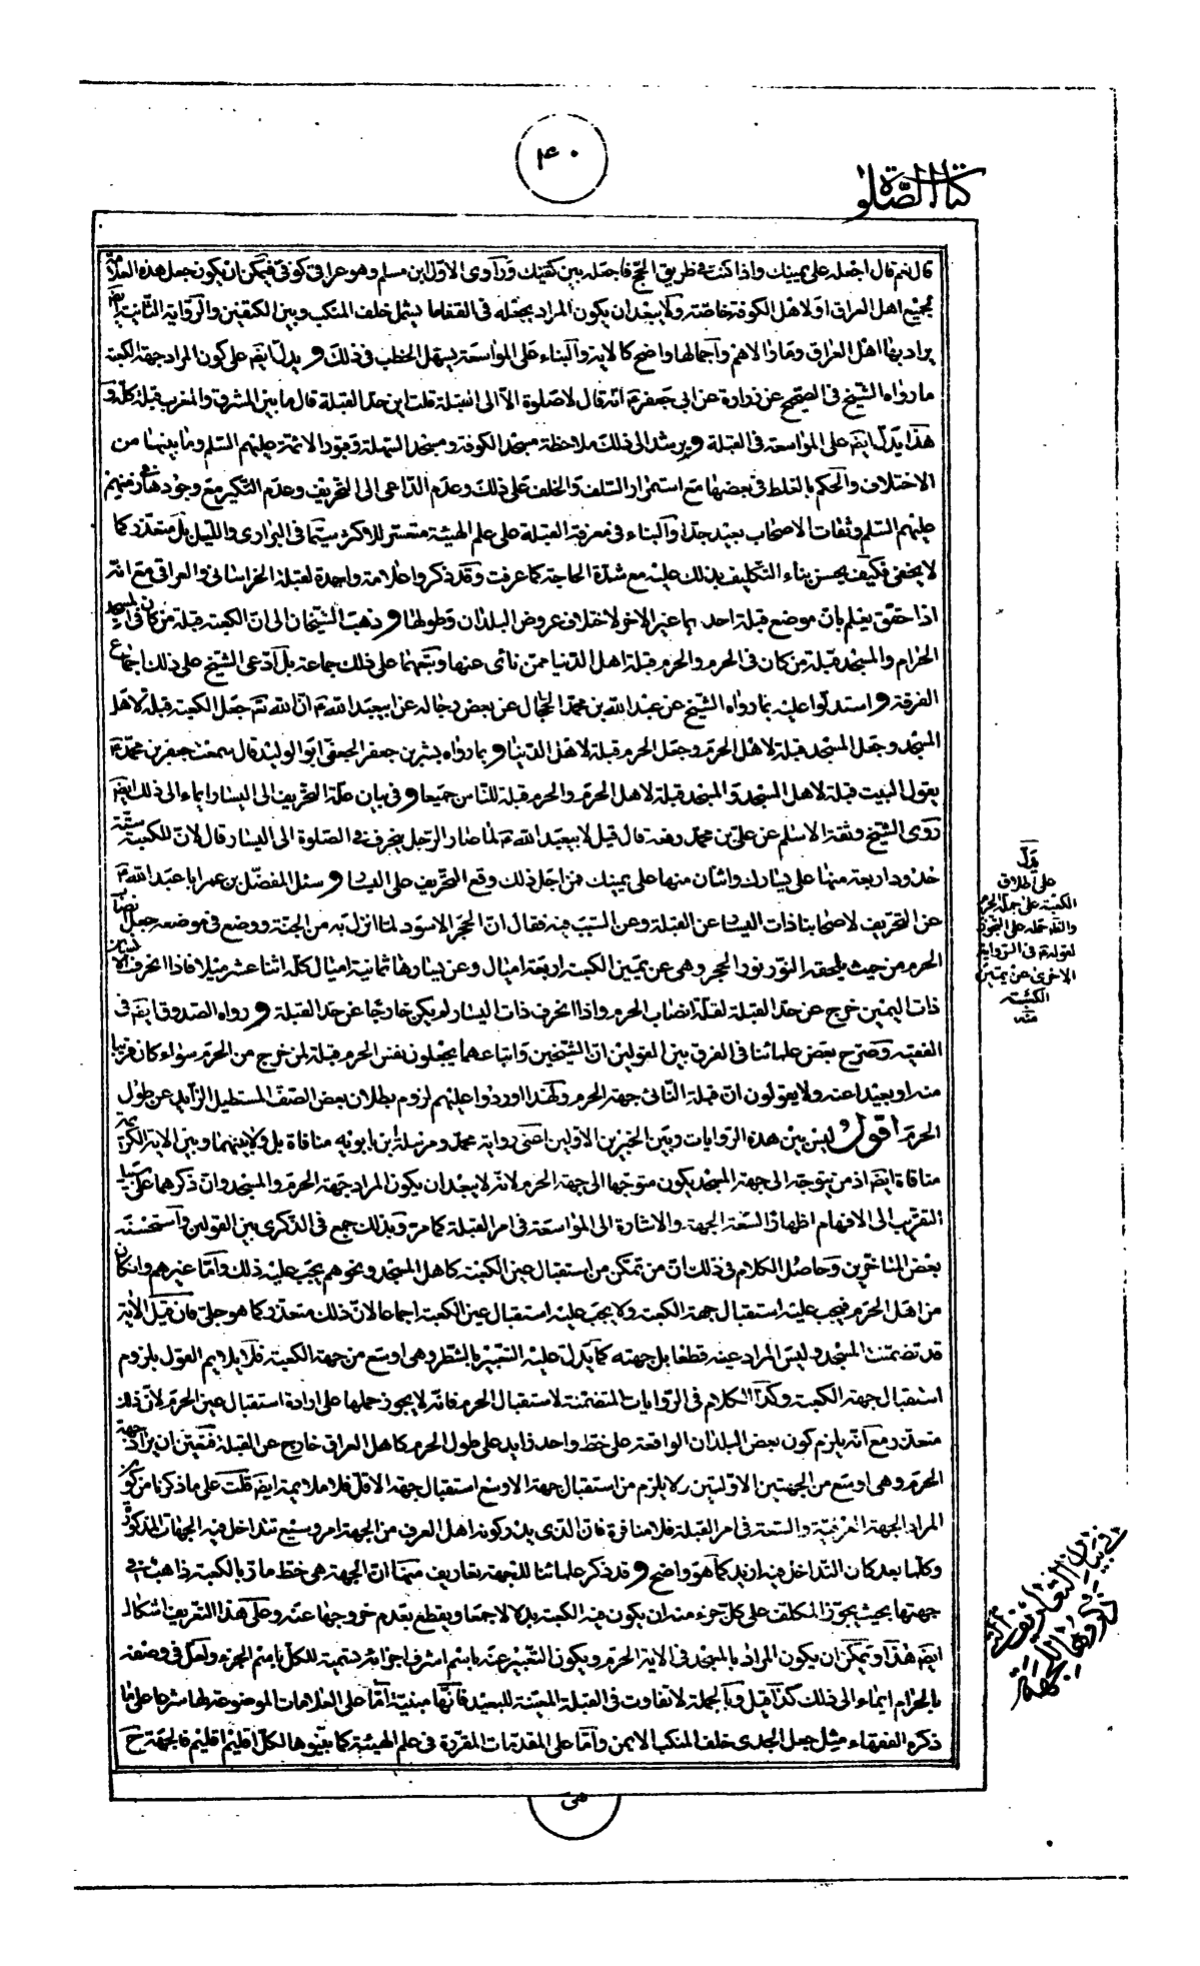 ٤٠
كتاب الصلوة
قال نعم قال اجعله على يمينك واذا كنت في طريق الحج فاجعله بين كتفيك وراوى الاول ابن مسلم وهو عراقي كوفي فيمكن ان يكون جعل هذه العلامة
لجميع اهل العراق او لاهل الكوفة خاصة ولا يبعد ان يكون المراد بجعله في القفا ما يشمل خلف المنكب وبين الكتفين والرواية الثانية ايضا
يراد بها اهل العراق وما والاهم واجمالها واضح كالاية والبناء على المواسعة يسهل الخطب في ذلك ويدل ايضا على كون المراد جهة الكعبة
ما رواه الشيخ في الصحيح عن زرارة عن ابي جعفر ع انه قال لا صلوة الا الى القبلة قلت اين حد القبلة قال ما بين المشرق والمغرب قبلة كله و
هذا يدل ايضا على المواسعة في القبلة ويرشد الى ذلك ملاحظة مسجد الكوفة ومسجد السهلة وقبور الائمة عليهم السلم وما بينهما من
الاختلاف والحكم بالغلط في بعضها مع استمرار السلف والخلف على ذلك وعدم الداعى الى التحريف وعدم النكير مع وجودها في زمنهم
عليهم السلم وثقات الاصحاب بعيد جدا والبناء في معرفة القبلة على علم الهيئة متعسر للاكثر سيما في البرارى والليل بل متعذر كما
لا يخفى فكيف يحسن بناء التكليف بذلك عليه مع شدة الحاجة كما عرفت وقد ذكروا علامة واحدة لقبلة الخراساني والعراقي مع انه
اذا حقق يعلم بان موضع قبلة احدهما غير الاخر لاختلاف عروض البلدان وطولها وذهب الشيخان الى ان الكعبة قبلة من كان في المسجد
الحرام والمسجد قبلة من كان في الحرم والحرم قبلة اهل الدنيا ممن نائى عنها وتبعهما على ذلك جماعة بل ادعى الشيخ على ذلك اجماع
الفرقة واستدلوا عليه بما رواه الشيخ عن عبد الله بن محمد الحجال عن بعض رجاله عن ابيعبد الله ع ان الله تعم جعل الكعبة قبلة لاهل
المسجد وجعل المسجد قبلة لاهل الحرم وجعل الحرم قبلة لاهل الدنيا وبما رواه بشر بن جعفر الجعفي ابو الوليد قال سمعت جعفر بن محمد ع
يقول البيت قبلة لاهل المسجد والمسجد قبلة لاهل الحرم والحرم قبلة للناس جميعا وفي بيان علة التحريف الى اليسار ايماء الى ذلك ايضا
روى الشيخ وثقة الاسلم عن علي بن محمد رفعه قال قيل لابيعبد الله ع لما صار الرجل ينحرف في الصلوة الى اليسار قال لان للكعبة ستة
حدود اربعة منها على يسارك واثنان منها على يمينك فمن اجل ذلك وقع التحريف على اليسار وسئل المفضل بن عمر ابا عبد الله ع
عن التحريف لاصحابنا ذات اليسار عن القبلة وعن السبب فيه فقال ان الحجر الاسود لما انزل به من الجنة ووضع في موضعه جعل انصاب
الحرم من حيث يلحقه النور نور الحجر وهي عن يمين الكعبة اربعة اميال وعن يسارها ثمانية اميال كله اثنا عشر ميلا فاذا انحرف الانسان
ذات اليمين خرج عن حد القبلة لقلة انصاب الحرم واذا انحرف ذات اليسار لم يكن خارجا عن حد القبلة ورواه الصدوق ايضا في
الفقيه وصرح بعض علمائنا في الفرق بين القولين ان الشيخين واتباعهما يجعلون نفس الحرم قبلة لمن خرج من الحرم سواء كان قريبا
منه او بعيدا عنه ولا يقولون ان قبلة النائى جهة الحرم ولهذا اوردوا عليهم لزوم بطلان بعض الصف المستطيل الزايد عن طول
الحرم اقول ليس بين هذه الروايات وبين الخبرين الاولين اعنى رواية محمد ومرسلة ابن بابويه منافاة بل ولا بينهما وبين الاية الكريمة
منافاة ايضا اذ من يتوجه الى جهة المسجد يكون متوجها الى جهة الحرم لانه لا يبعد ان يكون المراد جهة الحرم والمسجد وان ذكرهما على سبيل
التقريب الى الافهام اظهارا لسعة الجهة والاشارة الى المواسعة في امر القبلة كما مر وبذلك جمع في الذكرى بين القولين واستحسنه
بعض المتاخرين وحاصل الكلام في ذلك ان من تمكن من استقبال عين الكعبة كاهل المسجد ونحوهم يجب عليه ذلك واما غيرهم وان كان
من اهل الحرم فيجب عليه استقبال جهة الكعبة ولا يجب عليه استقبال عين الكعبة اجماعا لان ذلك متعذر كما هو جلى فان قيل الاية
قد تضمنت المسجد وليس المراد عينه قطعا بل جهته كما يدل عليه التعبير بالشطر وهى اوسع من جهة الكعبة فلا يلايم القول بلزوم
استقبال جهة الكعبة وكذا الكلام في الروايات المتضمنة لاستقبال الحرم فانه لا يجوز حملها على ارادة استقبال عين الحرم لان ذلك
متعذر مع انه يلزم كون بعض البلدان الواقعة على خط واحد زايد على طول الحرم كاهل العراق خارج عن القبلة فتعين ان يراد جهة
الحرم وهى اوسع من الجهتين الاوليتين ولا يلزم من استقبال جهة الاوسع استقبال جهة الاقل فلا ملايمة ايضا قلت على ما ذكرنا من كون
المراد الجهة العرفية والسعة في امر القبلة فلا منافرة فان الذى يدركونه اهل العرف من الجهة امر وسيع تتداخل فيه الجهات المذكورة
وكلما بعد كان التداخل فيه ازيد كما هو واضح وقد ذكر علمائنا للجهة تعاريف منها ان الجهة هى خط مار بالكعبة ذاهب في
جهتها بحيث يجوز المكلف على كل جزء منه ان يكون فيه الكعبة بدلا لا جمعا ويقطع بعدم خروجها عنه وعلى هذا التعريف اشكال
ايضا هذا ويمكن ان يكون المراد بالمسجد في الاية الحرم ويكون التعبير عنه باسم اشرف اجزائه تسمية للكل باسم الجزء ولعل في وصفه
بالحرام ايماء الى ذلك كذا قيل وبالجملة لا تفاوت في القبلة المعينة للبعيد فانها مبنية اما على العلامات الموضوعة لها شرعا على ما
ذكره الفقهاء مثل جعل الجدى خلف المنكب الايمن واما على المقدمات المقررة في علم الهيئة كما بينوها لكل اقليم اقليم فالجهة ح
هى
يدل
على اطلاق
الكعبة على جملة الحرم
والله حمله على التجوز
لقوله ع في الرواية
الاخرى عن يمين
الكعبة
منه
في بيان التعاريف التى
ذكروها للجهة